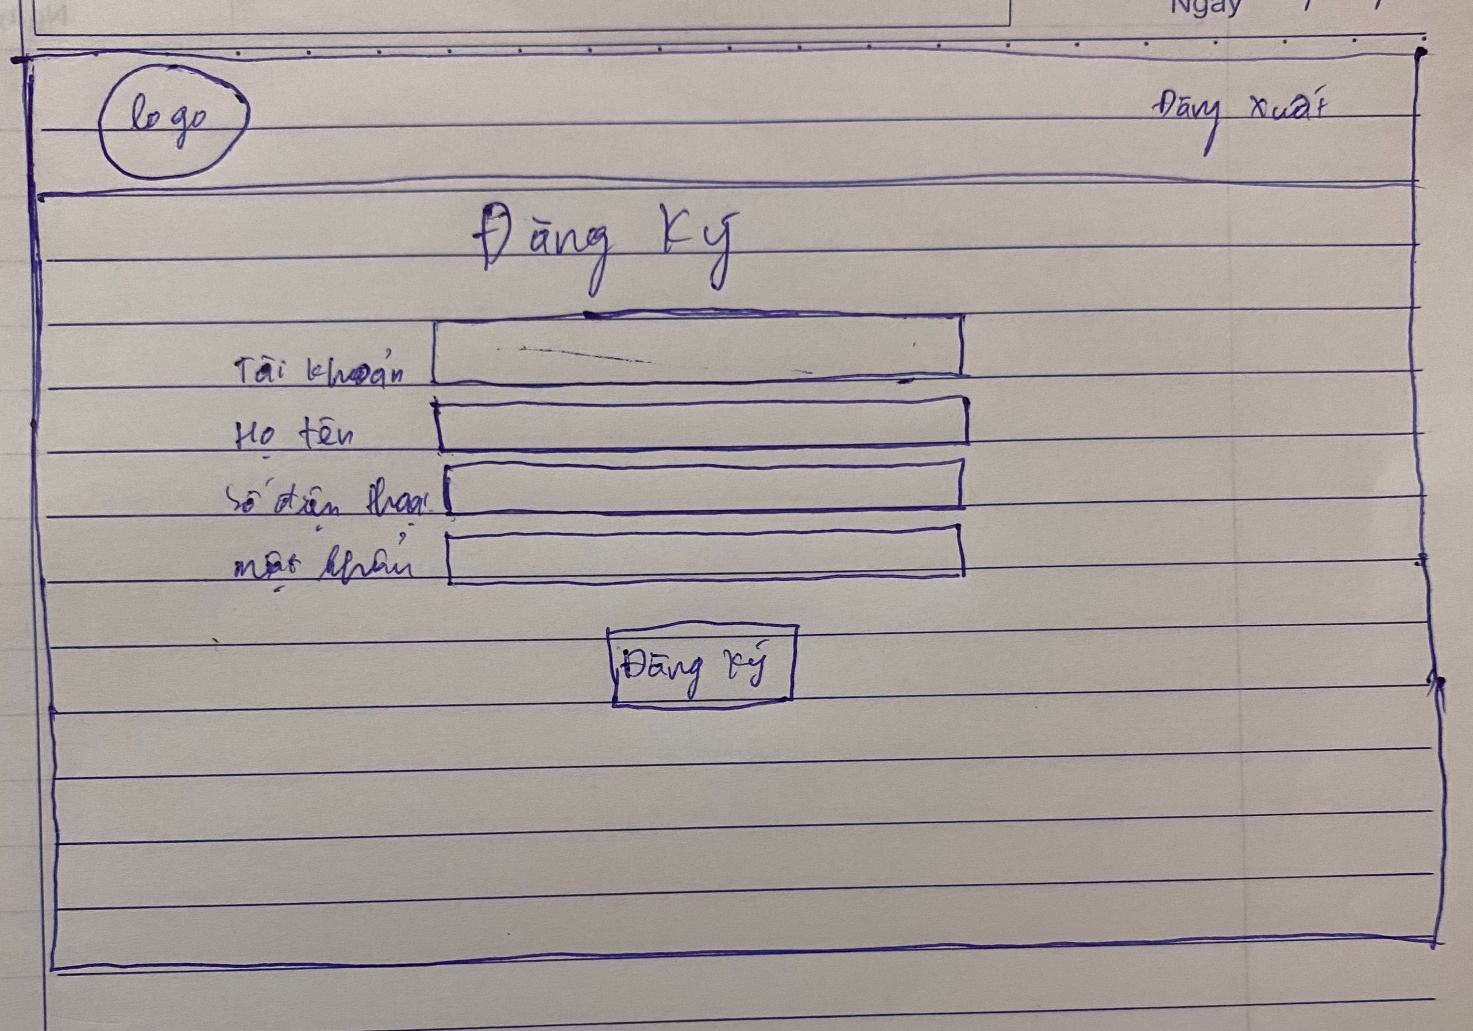 Ngày / /
logo
Đăng xuất
Đăng Ký
Tài khoản
Họ tên
Số điện thoại
mật khẩu
Đăng ký